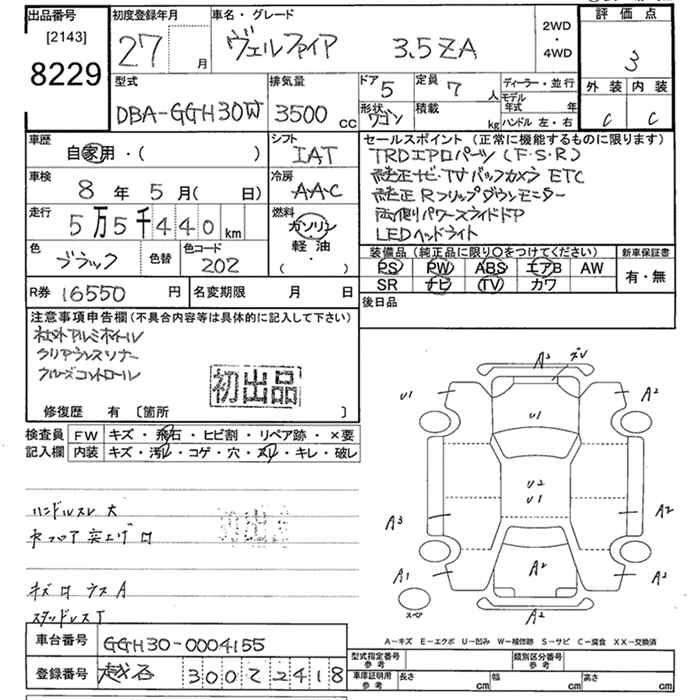 出品番号
[2143]
8229
初度登録年月
27 月
車名・グレード
ヴェルファイア 3.5ZA
2WD
・
4WD
評価点
3
外装 内装
C C
型式
DBA-GGH30W
排気量
3500 cc
ドア
5
形状
ワゴン
定員
7 人
積載
kg
ディーラー・並行
モデル年式 年
ハンドル 左・右
車歴
自家用・( )
シフト
IAT
車検
8 年 5 月( 日)
冷房
AAC
走行
5万5千440km
燃料
ガソリン
軽油
( ・ )
色
ブラック
色替
色コード
202
R券 16550 円
名変期限 月 日
セールスポイント (正常に機能するものに限ります)
TRDエアロパーツ(F・S・R)
純正ナビ・TV バックカメラ ETC
純正 Rフリップダウンモニター
両側パワースライドドア
LEDヘッドライト
装備品 (純正品に限り○をつけてください)
PS PW ABS エアB AW
SR ナビ TV カワ
新車保証書
有・無
後日品
注意事項申告欄(不具合内容等は具体的に記入して下さい)
社外アルミホイール
クリアランスソナー
クルーズコントロール
初出品
修復歴 有 [箇所 ]
検査員
記入欄
FW キズ・飛石・ヒビ割・リペア跡・×要
内装 キズ・汚レ・コゲ・穴・スレ・キレ・破レ
ハンドルスレ 大
初出品
キズ ロ ウス A
スタッドレス T
A3
U1
A2
U1
U2
U1
A3
A2
A1
A2
A2
A2
スペア
A-キズ E-エクボ U-凹み W-補修跡 S-サビ C-腐食 XX-交換済
車台番号 GGH30-0004155
登録番号 越谷 300 そ 2418
型式指定番号
参考
類別区分番号
参考
車庫証明用
参考
長さ cm
幅 cm
高さ cm